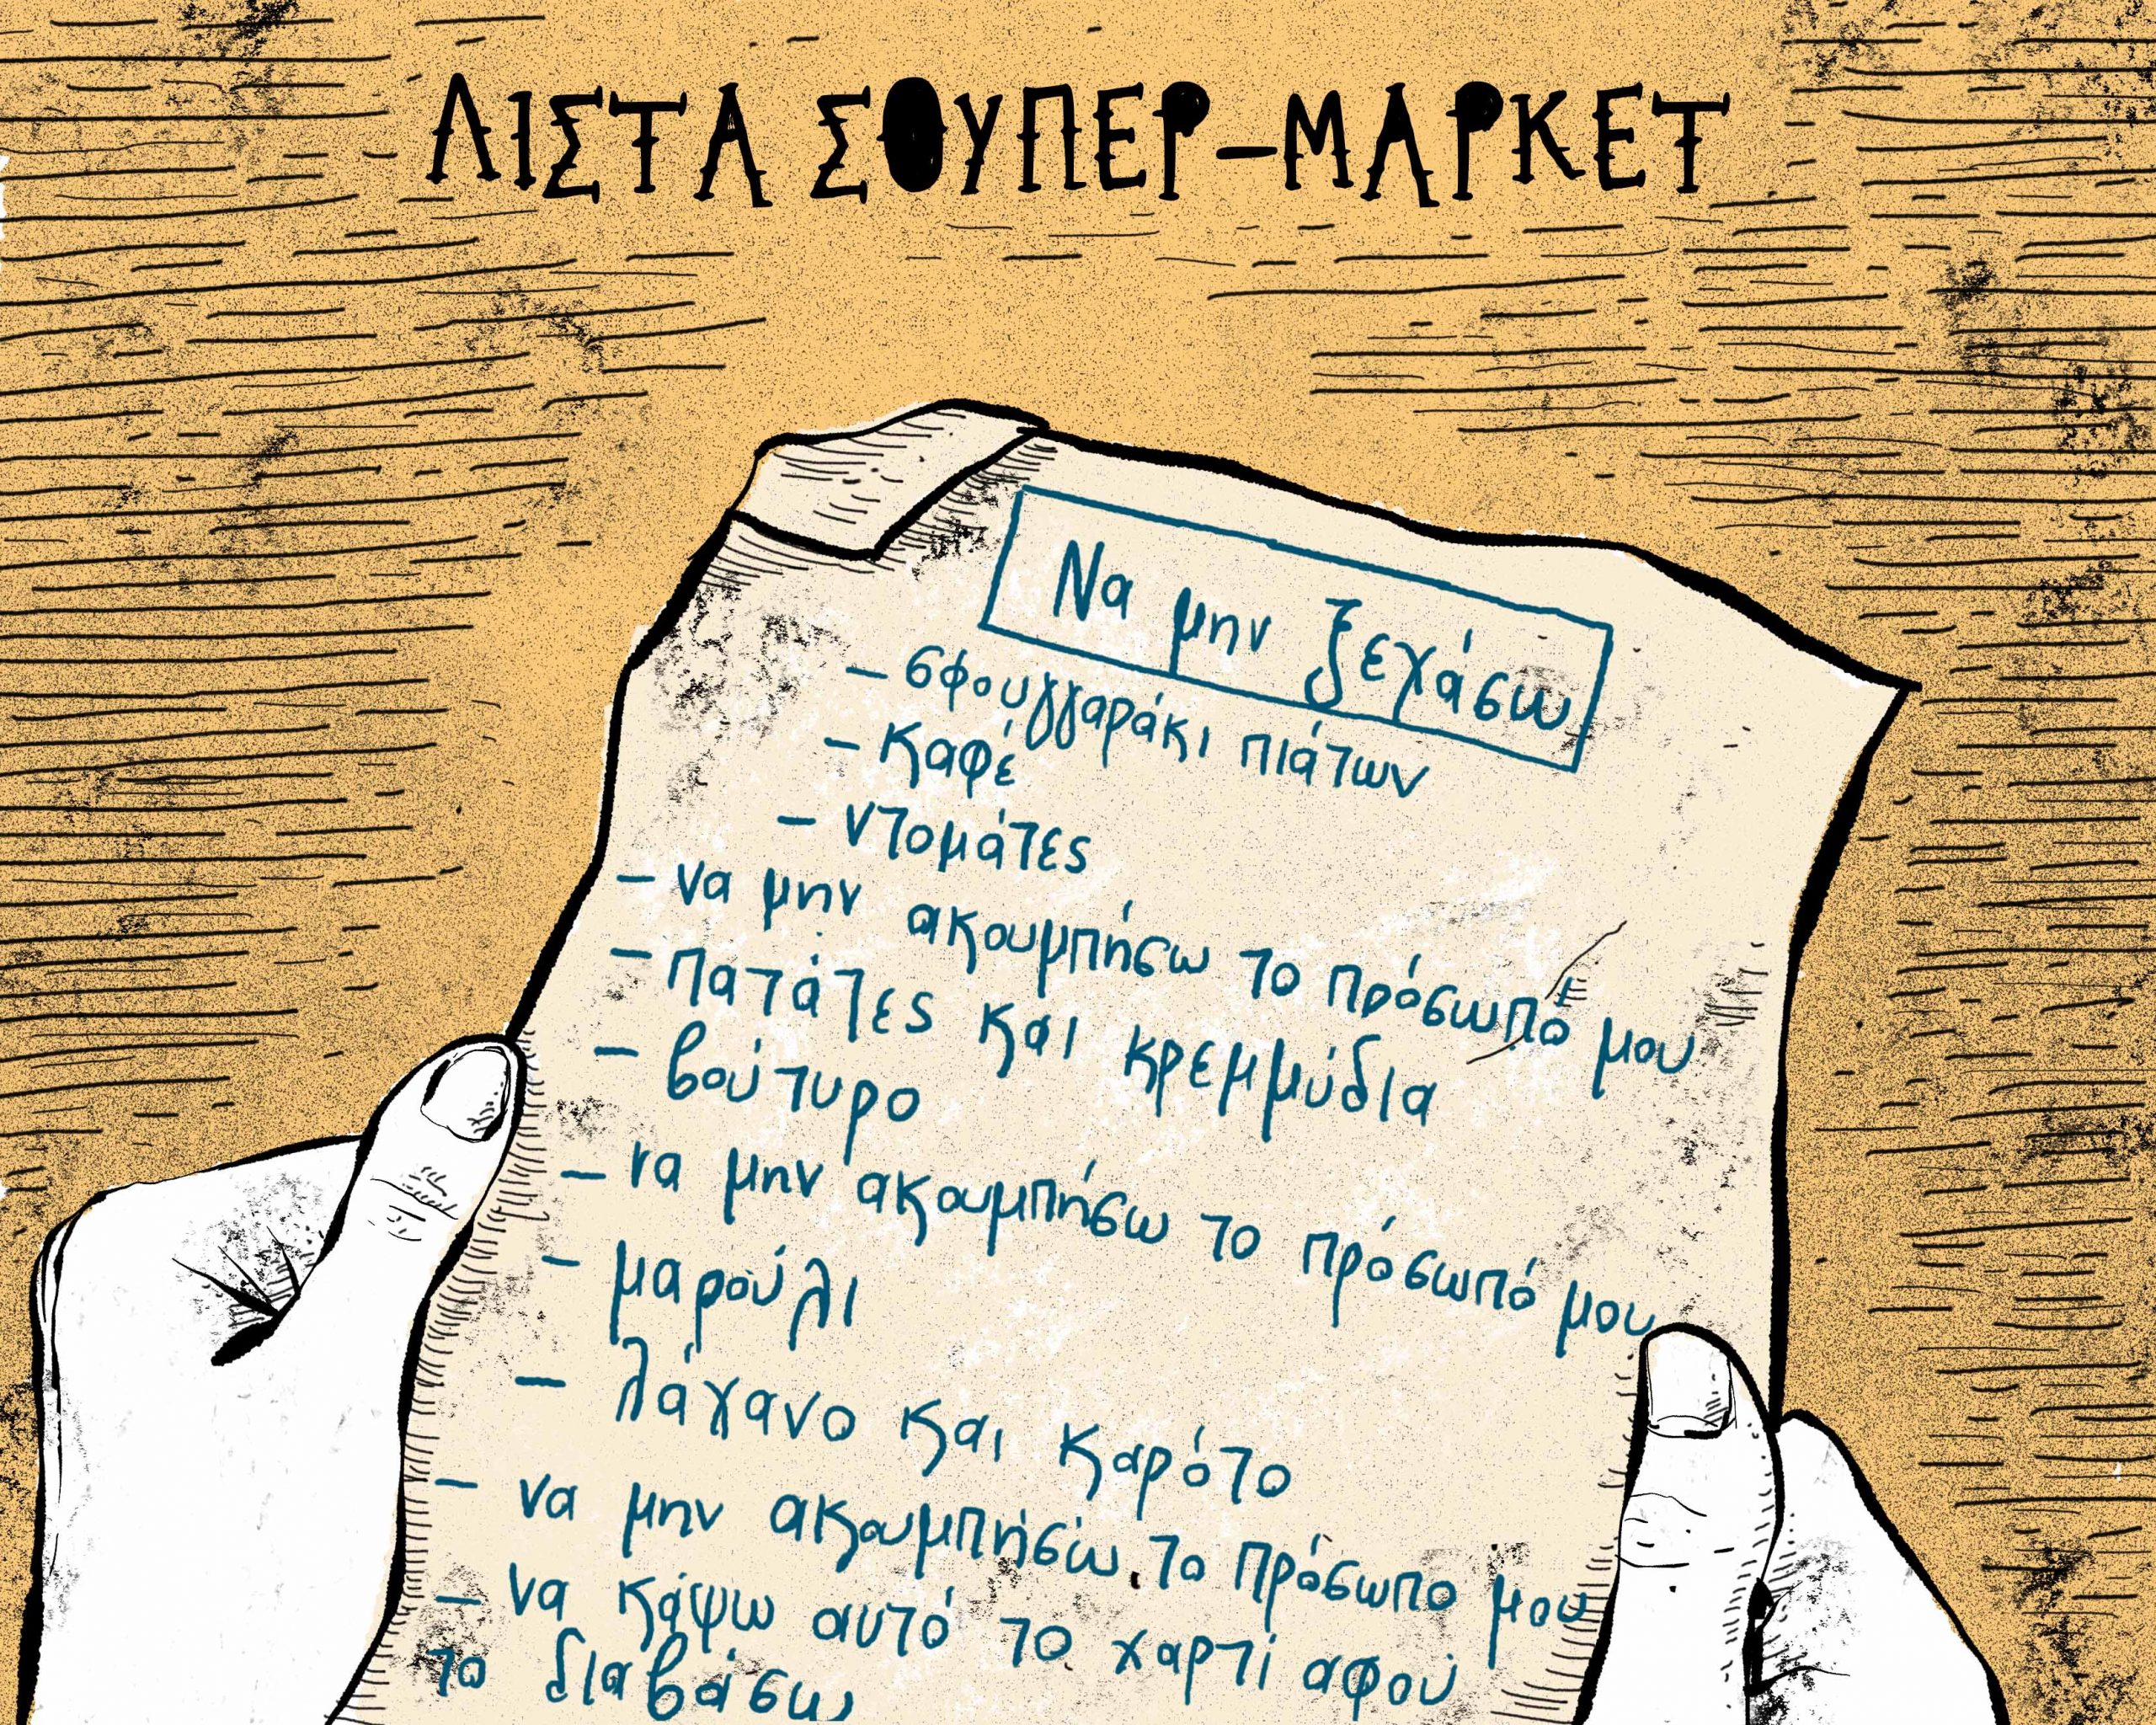 ΛΙΣΤΑ ΣΟΥΠΕΡ-ΜΑΡΚΕΤ
Να μην ξεχάσω
- σφουγγαράκι πιάτων
- καφέ
- ντομάτες
- να μην ακουμπήσω το πρόσωπό μου
- πατάτες και κρεμμύδια
- βούτυρο
- να μην ακουμπήσω το πρόσωπό μου
- μαρούλι
- λάχανο και καρότο
- να μην ακουμπήσω το πρόσωπο μου
- να κάψω αυτό το χαρτί αφού
το διαβάσω